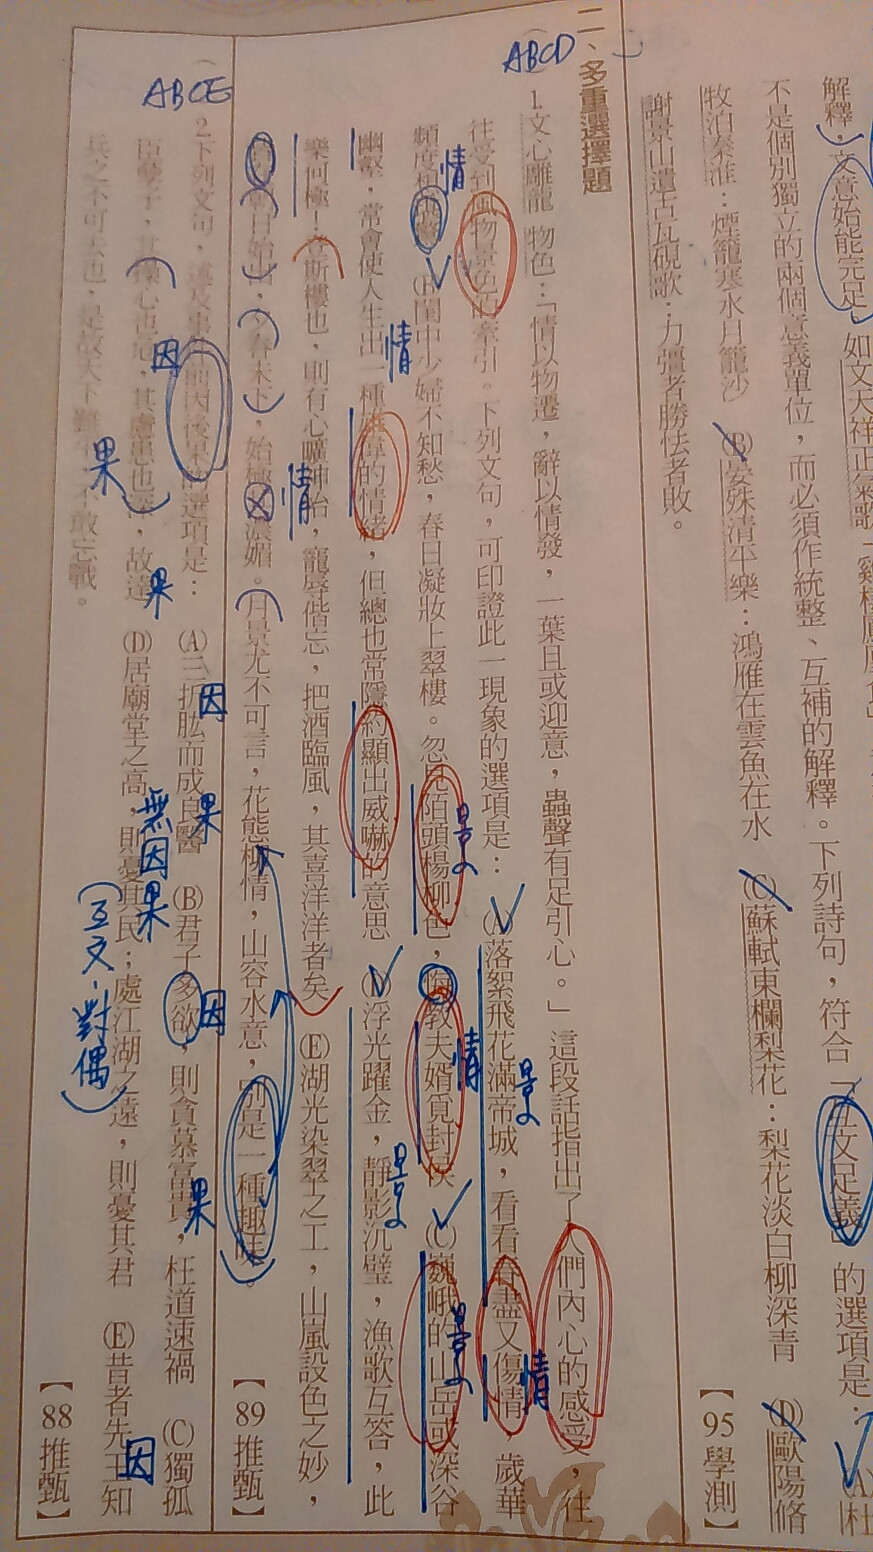 解釋，文意始能完足，如文天祥正氣歌
不是個別獨立的兩個意義單位，而必須作統整、互補的解釋。下列詩句，符合「互文足義」的選項是： (A)杜
牧泊秦淮：煙籠寒水月籠沙 (B)晏殊清平樂：鴻雁在雲魚在水 (C)蘇軾東欄梨花：梨花淡白柳深青 (D)歐陽脩
謝景山遺古瓦硯歌：力彊者勝怯者敗。 【95學測】
二、多重選擇題
ABCD
1.文心雕龍 物色：「情以物遷，辭以情發，一葉且或迎意，蟲聲有足引心。」這段話指出了人們內心的感受，往
往受到風物景色的牽引。下列文句，可印證此一現象的選項是： (A)落絮飛花滿帝城，看看春盡又傷情，歲華
景 情
頻度 (B)閨中少婦不知愁，春日凝妝上翠樓。忽見陌頭楊柳色，悔教夫婿覓封侯 (C)巍峨的山岳或深谷
情 景 情 景
幽壑，常會使人生出一種 的情緒，但總也常隱約顯出威嚇的意思 (D)浮光躍金，靜影沉璧，漁歌互答，此
情 景
樂何極！登斯樓也，則有心曠神怡，寵辱偕忘，把酒臨風，其喜洋洋者矣 (E)湖光染翠之工，山嵐設色之妙，
情
始極濃媚。月景尤不可言，花態柳情，山容水意，別是一種趣味。 【89推甄】
ABCE
2.下列文句， 前因後果的選項是： (A)三折肱而成良醫 (B)君子多欲，則貪慕富貴，枉道速禍 (C)獨孤
因 果 因 果
臣孽子，其操心也危，其慮患也深，故達 (D)居廟堂之高，則憂其民；處江湖之遠，則憂其君 (E)昔者先王知
因 果 無因果 因
兵之不可去也，是故天下雖平，不敢忘戰。 【88推甄】
果 (互文、對偶)